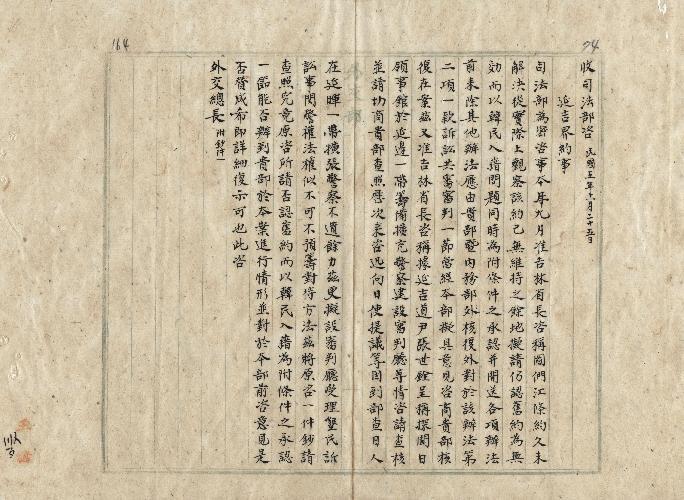 164
74
收司法部咨 民國五年十月二十五日
延吉界約事
司法部為密咨事今年九月准吉林省長咨稱圖們江條約久未
解決從實際上觀察該約已無維持之餘地擬請仍認舊約為無
効而以韓民入籍問題同時為附條件之承認并開送各項辦法
前來除其他辦法應由貴部暨內務部外核復外對於該辦法第
二項一款訴訟共審審判一節當經本部擬具意見咨商貴部核
復在案茲又准吉林省長咨稱據延吉道尹張世銓呈稱探聞日
領事館於延邊一帶籌備擴充警察建設審判廳等情咨請查核
並請切商貴部查照歷次來咨迅向日使提議等因到部查日人
在延琿一帶擴張警察不遺餘力茲更擬設審判廳受理墾民訴
訟事關警權法權似不可不預籌對待方法茲將原咨一件鈔請
查照究竟原咨所請否認舊約而以韓民入籍為附條件之承認
一節能否辦到貴部於本案進行情形並對於本部前咨意見是
否贊成希即詳細復示可也此咨
外交總長 附鈔件一